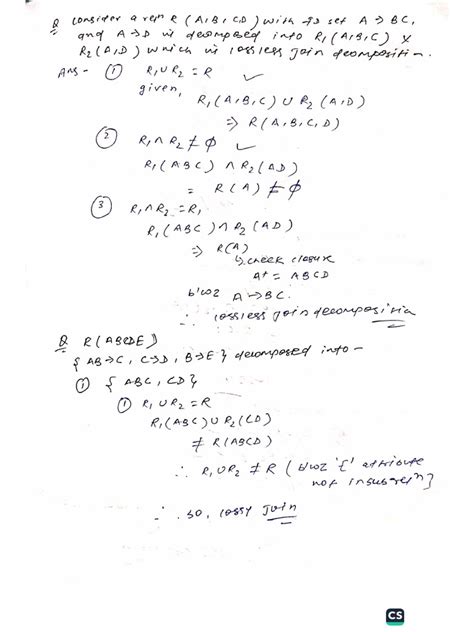 Q Consider a relⁿ R (A,B,C,D) with FD set A → BC,
and A → D is decomposed into R₁ (A,B,C) &
R₂ (A,D) which is lossless join decomposition.
Ans - ① R₁ ∪ R₂ = R ✓
given,
R₁ (A,B,C) ∪ R₂ (A,D)
⇒ R (A,B,C,D)
② R₁ ∩ R₂ ≠ ϕ ✓
R₁ (ABC) ∩ R₂ (AD)
= R (A) ≠ ϕ
③ R₁ ∩ R₂ = R₁
R₁ (ABC) ∩ R₂ (AD)
⇒ R(A)
↳ check closure
A+ = ABCD
b'coz A → BC.
∴ lossless join decomposition
Q R (ABCDE)
{ AB → C, C → D, B → E } decomposed into -
① { ABC, CD }
① R₁ ∪ R₂ = R
R₁ (ABC) ∪ R₂ (CD)
≠ R (ABCD)
∴ R₁ ∪ R₂ ≠ R ( b'coz 'E' attribute
not in subrelⁿ }
∴ so, lossy join
CS